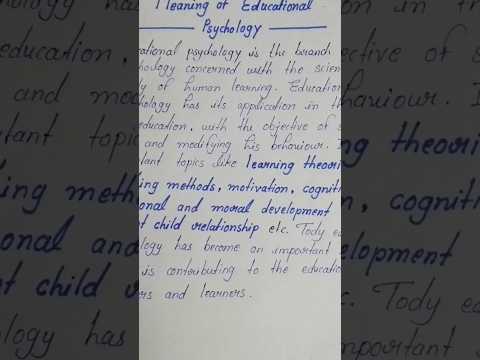 Meaning of Educational
Psychology
ational psychology is the branch
hology concerned with the scien
y of human learning. Education
hology has its application in th
education, with the objective of s
and modifying his behaviour. I
tant topics like learning theori
ing methods, motivation, cognit
onal and moral development
t child relationship etc. Tody e
logy has become an important
is contributing to the educatio
rs and learners.